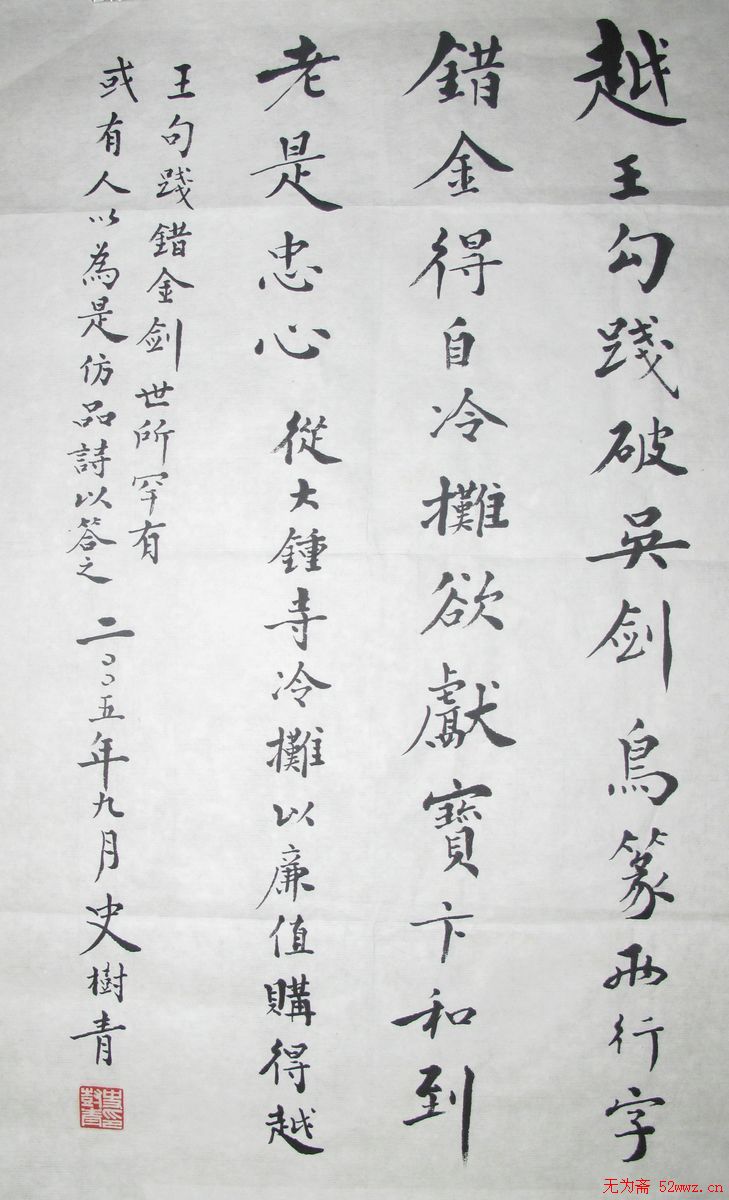 越王勾踐破吳剑鳥篆兩行字
錯金得自冷攤欲獻寶卞和到
老是忠心 從大鍾寺冷攤以廉值購得越
王句踐錯金剑世所罕有
或有人以為是仿品詩以答之 二〇〇五年九月史樹青
无为斋 52wwz.cn